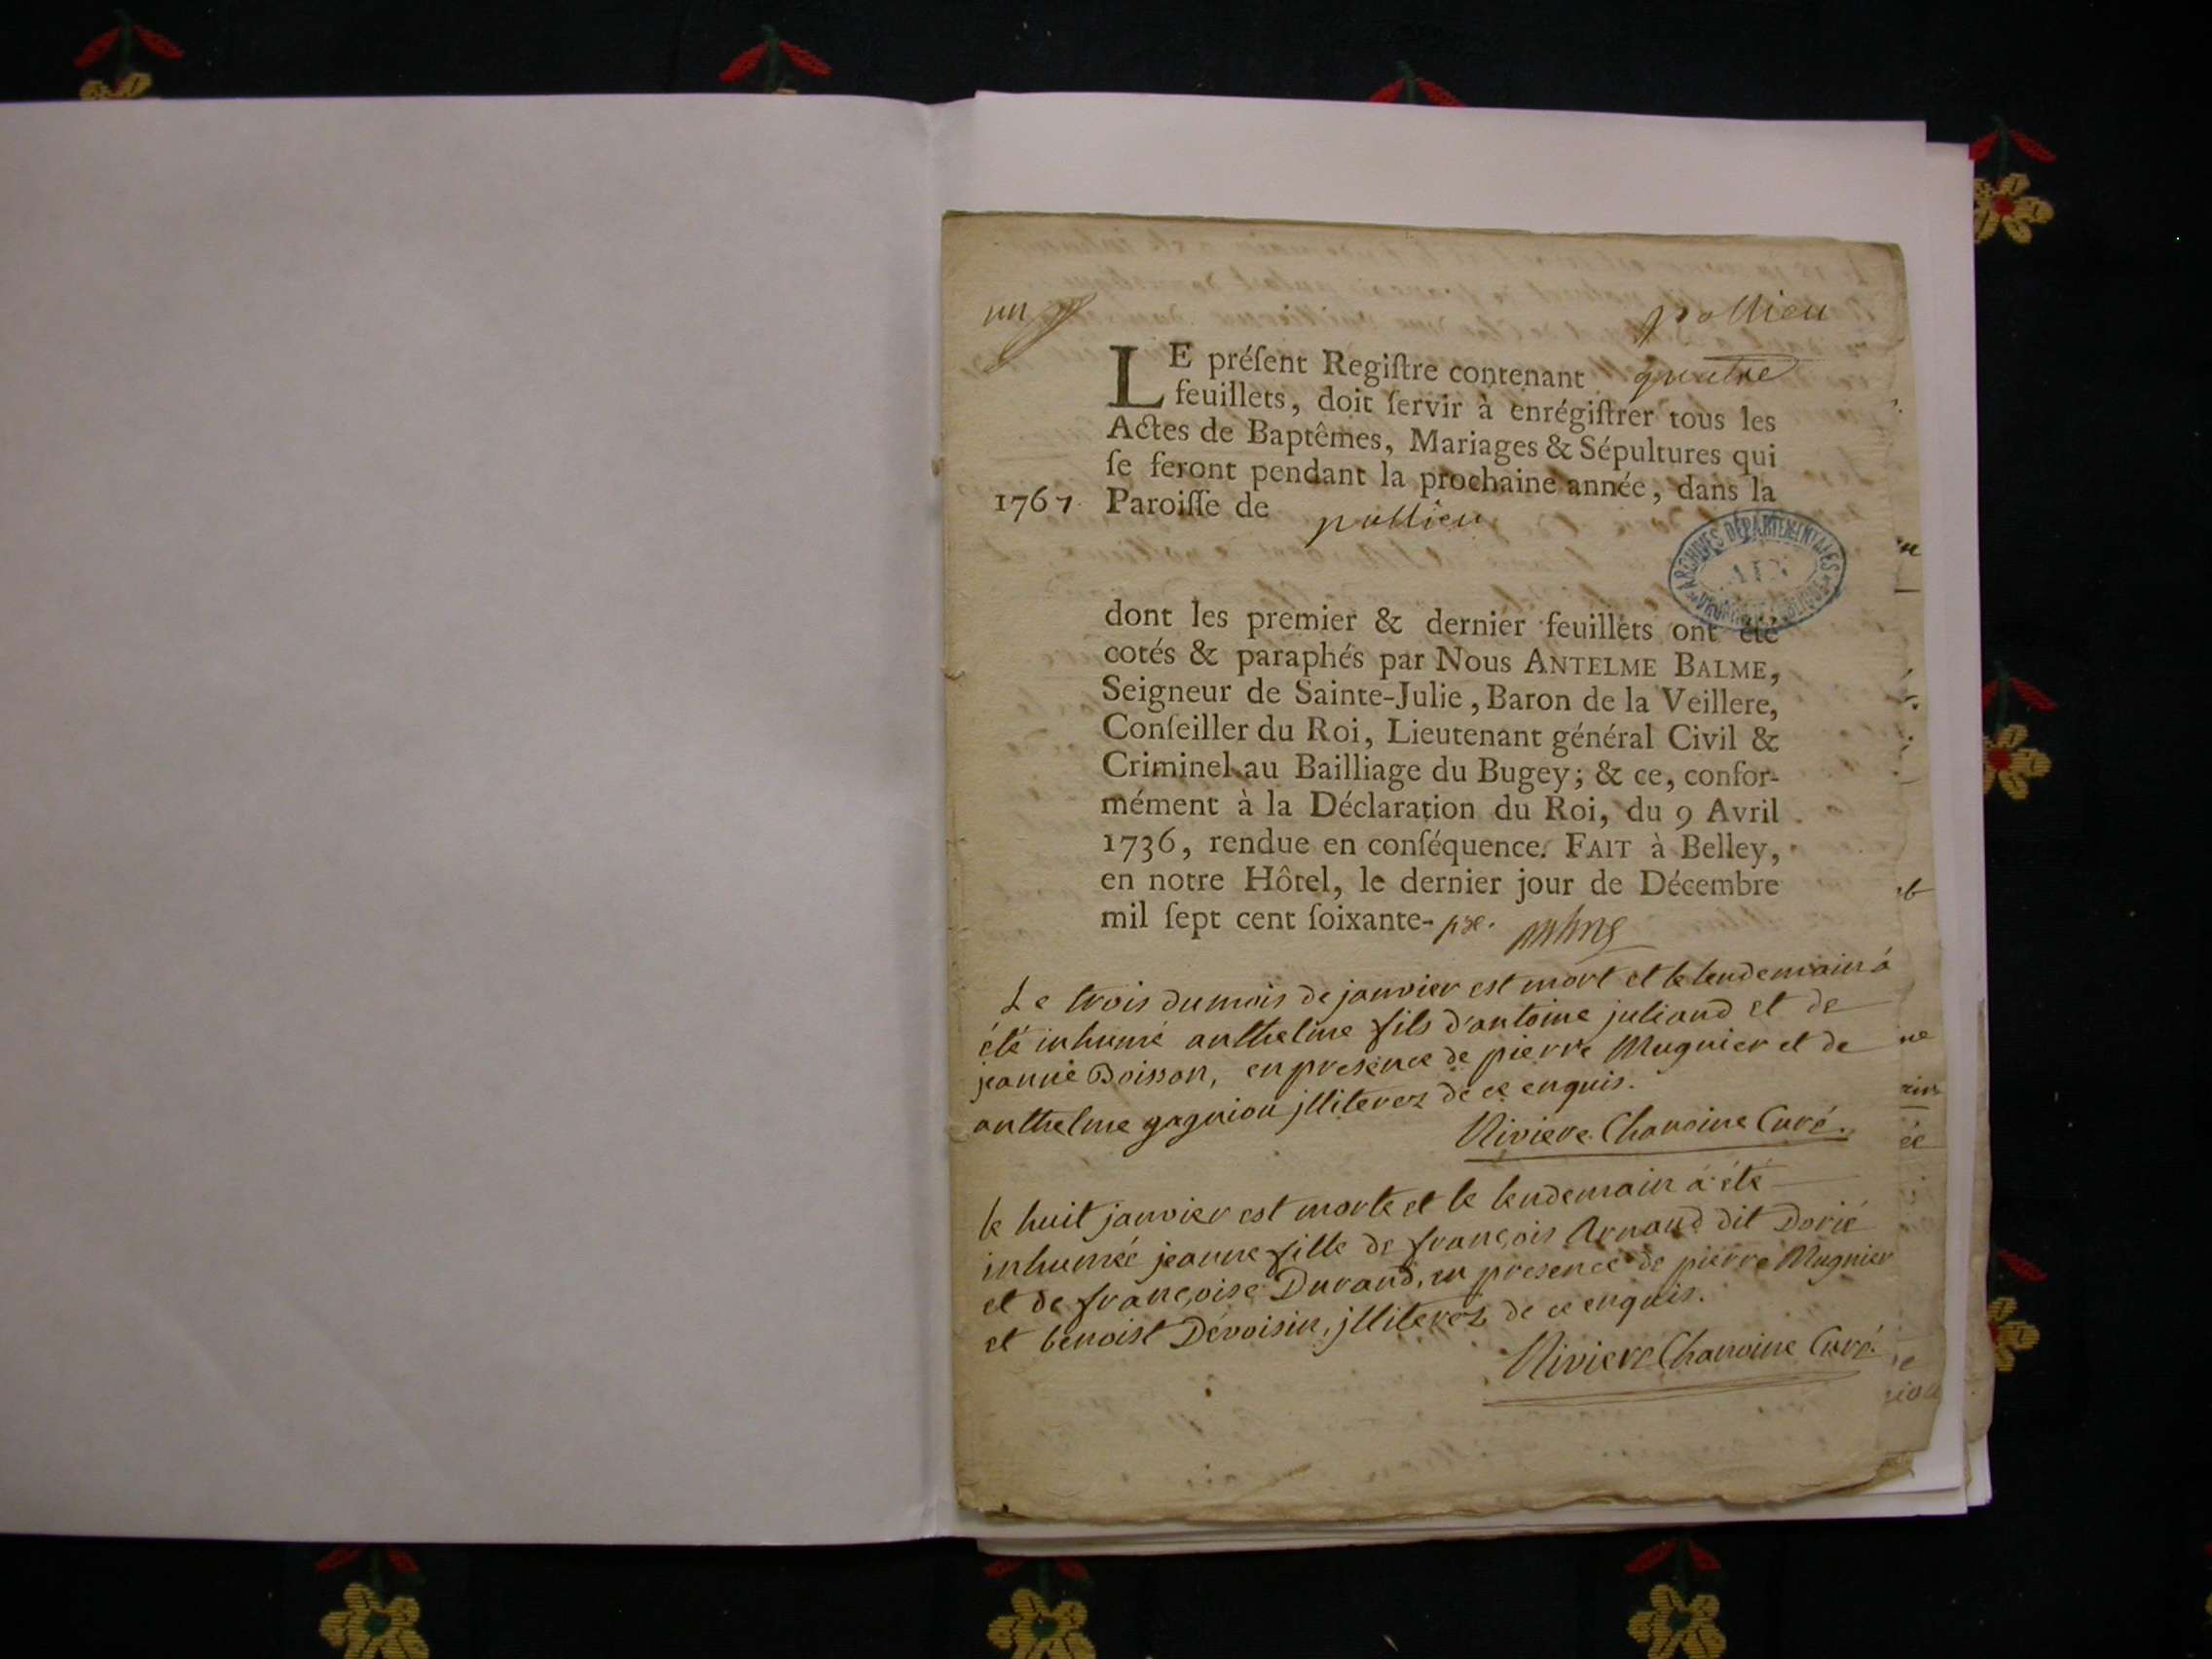 un
pollieu
LE préſent Regiſtre contenant quatre
feuillets, doit ſervir à enrégiſtrer tous les
Actes de Baptêmes, Mariages & Sépultures qui
ſe feront pendant la prochaine année, dans la
1767 Paroiſſe de pollieu
ARCHIVES DÉPARTEMENTALES
AIN
dont les premier & dernier feuillets ont été
cotés & paraphés par Nous ANTELME BALME,
Seigneur de Sainte-Julie, Baron de la Veillere,
Conſeiller du Roi, Lieutenant général Civil &
Criminel au Bailliage du Bugey; & ce, confor-
mément à la Déclaration du Roi, du 9 Avril
1736, rendue en conſéquence. FAIT à Belley,
en notre Hôtel, le dernier jour de Décembre
mil ſept cent ſoixante-
Le trois du mois de janvier est mort et le lendemain à
été inhumé anthelme fils d'antoine juliand et de
jeanne Boisson, en presence de pierre Mugnier et de
anthelme gagniou jlliterez de ce enquis.
Riviere Chanoine Curé.
le huit janvier est morte et le lendemain à été
inhumée jeanne fille de françois Arnaud dit Dorié
et de françoise Durand, en presence de pierre Mugnier
et benoist Dévoisin, jlliterez de ce enquis.
Riviere Chanoine Curé.